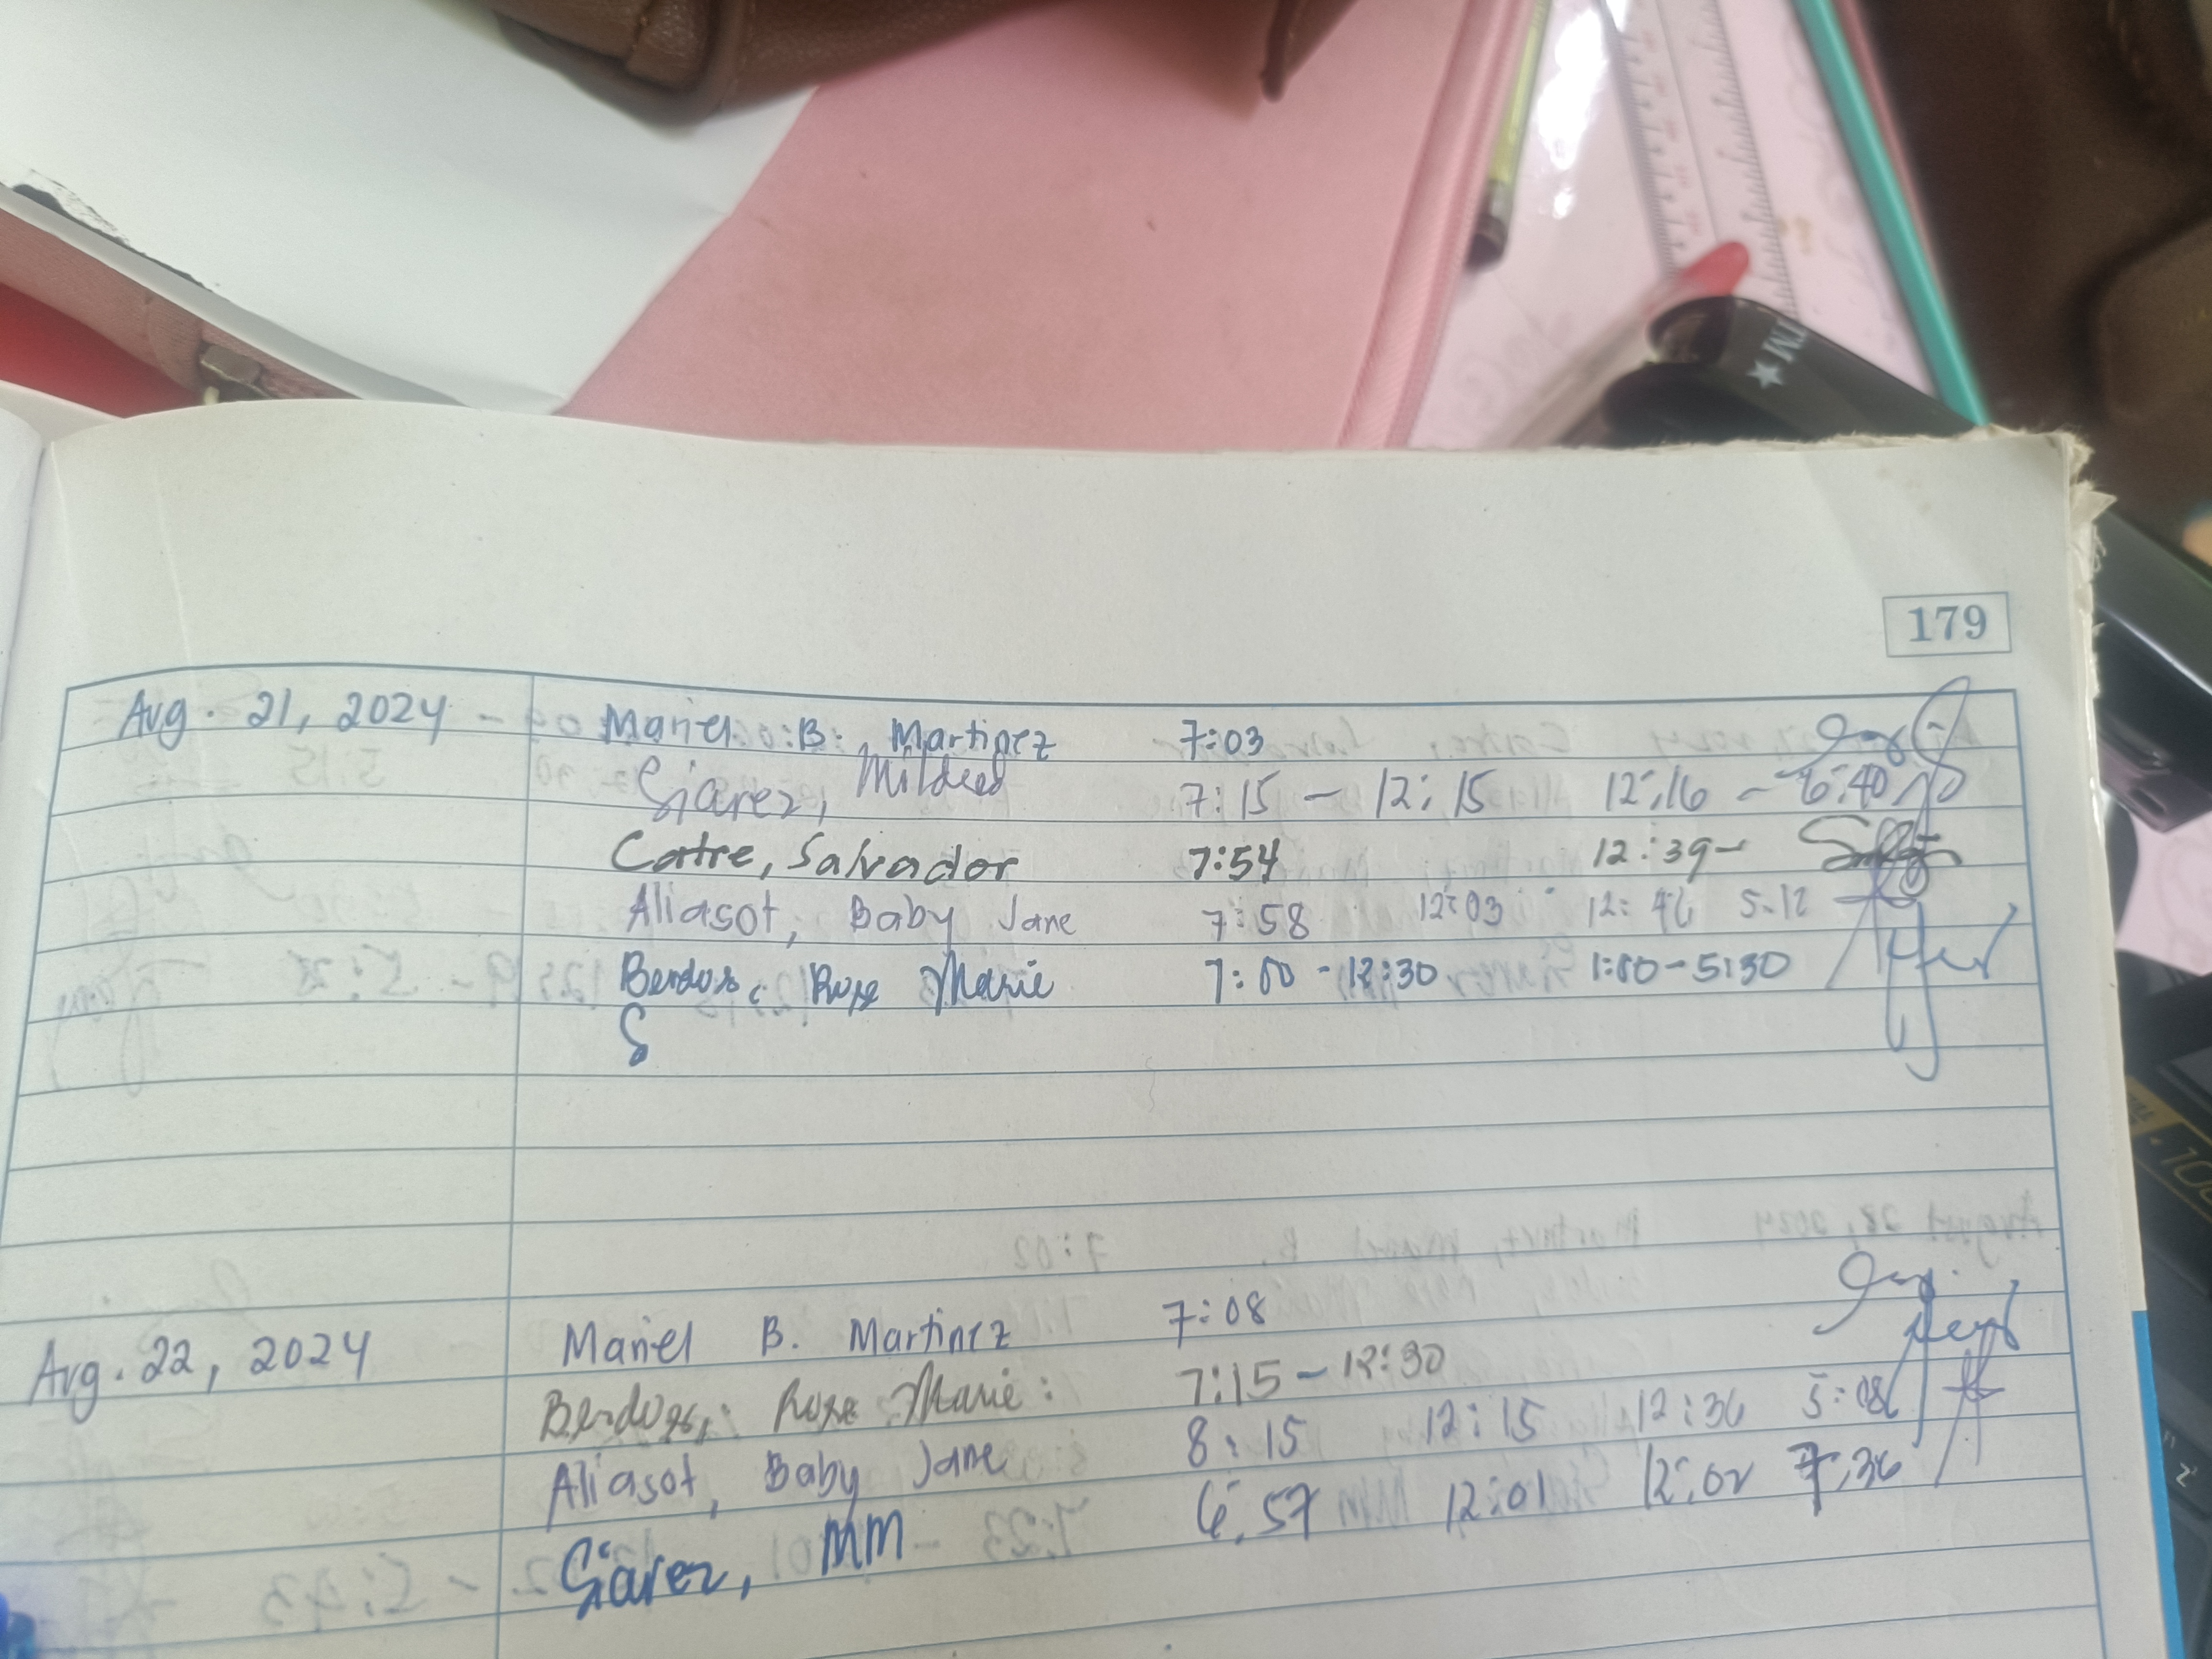 179
Aug. 21, 2024 - Mariel B. Martinez 7:03
Siarez, Mildred 7:15 - 12:15 12:16 - 6:40
Catre, Salvador 7:54 12:39-
Aliasot, Baby Jane 7:58 12:03 12:46 5:12
Bendos, Rose Marie 7:00 - 12:30 1:00 - 5:30
S
Aug. 22, 2024 Mariel B. Martinez 7:08
Rose Marie: 7:15 - 12:30
Aliasot, Baby Jane 8:15 12:15 12:36 5:08
Siarez, MM 6:57 12:01 12:02 7:36
TM